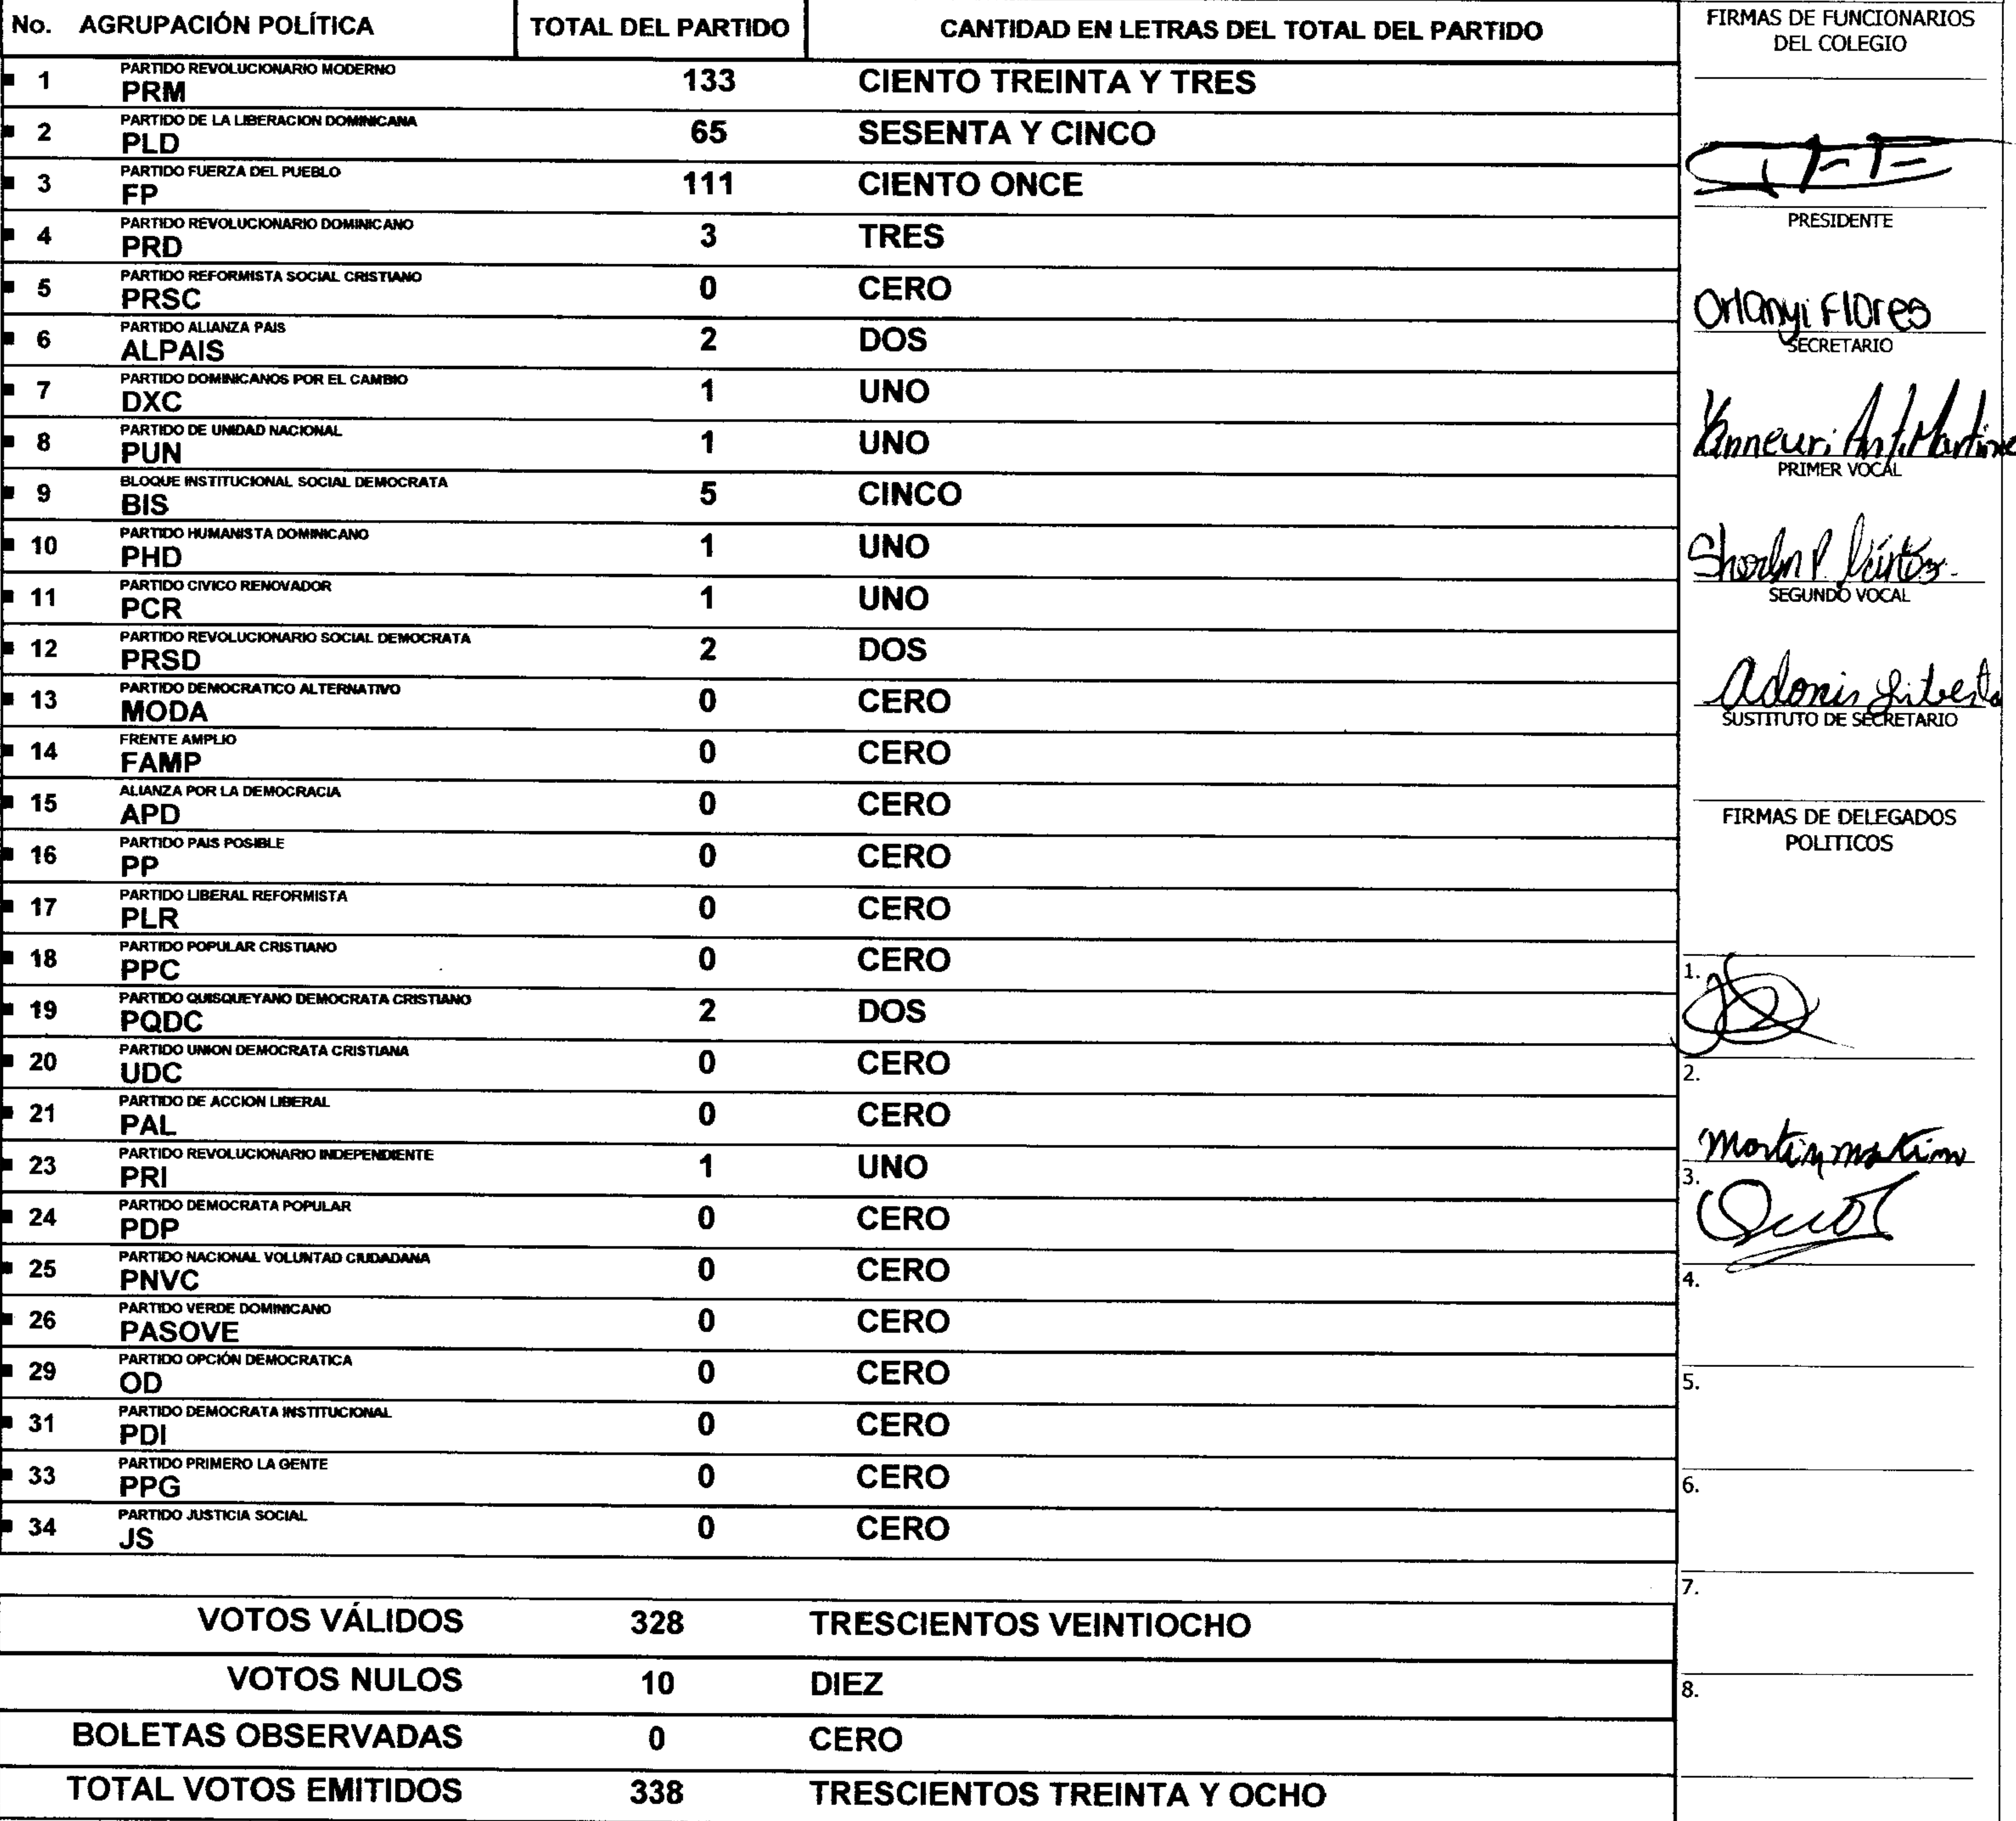 No. AGRUPACIÓN POLÍTICA TOTAL DEL PARTIDO CANTIDAD EN LETRAS DEL TOTAL DEL PARTIDO
PARTIDO REVOLUCIONARIO MODERNO
1 PRM 133 CIENTO TREINTA Y TRES
PARTIDO DE LA LIBERACION DOMINICANA
2 PLD 65 SESENTA Y CINCO
PARTIDO FUERZA DEL PUEBLO
3 FP 111 CIENTO ONCE
PARTIDO REVOLUCIONARIO DOMINICANO
4 PRD 3 TRES
PARTIDO REFORMISTA SOCIAL CRISTIANO
5 PRSC 0 CERO
PARTIDO ALIANZA PAIS
6 ALPAIS 2 DOS
PARTIDO DOMINICANOS POR EL CAMBIO
7 DXC 1 UNO
PARTIDO DE UNIDAD NACIONAL
8 PUN 1 UNO
BLOQUE INSTITUCIONAL SOCIAL DEMOCRATA
9 BIS 5 CINCO
PARTIDO HUMANISTA DOMINICANO
10 PHD 1 UNO
PARTIDO CIVICO RENOVADOR
11 PCR 1 UNO
PARTIDO REVOLUCIONARIO SOCIAL DEMOCRATA
12 PRSD 2 DOS
PARTIDO DEMOCRATICO ALTERNATIVO
13 MODA 0 CERO
FRENTE AMPLIO
14 FAMP 0 CERO
ALIANZA POR LA DEMOCRACIA
15 APD 0 CERO
PARTIDO PAIS POSIBLE
16 PP 0 CERO
PARTIDO LIBERAL REFORMISTA
17 PLR 0 CERO
PARTIDO POPULAR CRISTIANO
18 PPC 0 CERO
PARTIDO QUISQUEYANO DEMOCRATA CRISTIANO
19 PQDC 2 DOS
PARTIDO UNION DEMOCRATA CRISTIANA
20 UDC 0 CERO
PARTIDO DE ACCION LIBERAL
21 PAL 0 CERO
PARTIDO REVOLUCIONARIO INDEPENDIENTE
23 PRI 1 UNO
PARTIDO DEMOCRATA POPULAR
24 PDP 0 CERO
PARTIDO NACIONAL VOLUNTAD CIUDADANA
25 PNVC 0 CERO
PARTIDO VERDE DOMINICANO
26 PASOVE 0 CERO
PARTIDO OPCIÓN DEMOCRATICA
29 OD 0 CERO
PARTIDO DEMOCRATA INSTITUCIONAL
31 PDI 0 CERO
PARTIDO PRIMERO LA GENTE
33 PPG 0 CERO
PARTIDO JUSTICIA SOCIAL
34 JS 0 CERO
VOTOS VÁLIDOS 328 TRESCIENTOS VEINTIOCHO
VOTOS NULOS 10 DIEZ
BOLETAS OBSERVADAS 0 CERO
TOTAL VOTOS EMITIDOS 338 TRESCIENTOS TREINTA Y OCHO
FIRMAS DE FUNCIONARIOS
DEL COLEGIO
PRESIDENTE
Orlanyi Flores
SECRETARIO
Yanneuri Ant. Martine
PRIMER VOCAL
SEGUNDO VOCAL
Adonis
SUSTITUTO DE SECRETARIO
FIRMAS DE DELEGADOS
POLITICOS
1.
2.
3.
4.
5.
6.
7.
8.